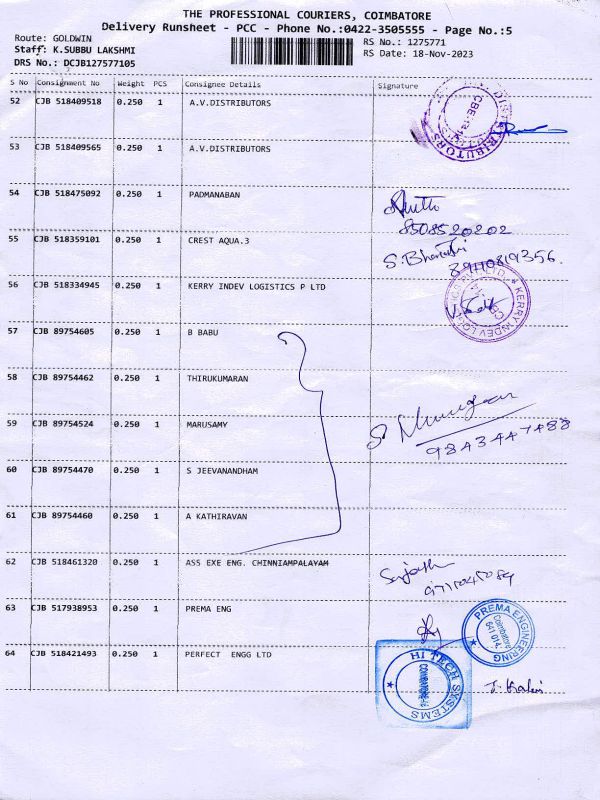 THE PROFESSIONAL COURIERS, COIMBATORE
Delivery Runsheet - PCC - Phone No.:0422-3505555 - Page No.:5
Route: GOLDWIN
Staff: K.SUBBU LAKSHMI
DRS No.: DCJB127577105
RS No.: 1275771
RS Date: 18-Nov-2023
S No Consignment No Weight PCS Consignee Details Signature
52 CJB 518409518 0.250 1 A.V.DISTRIBUTORS
53 CJB 518409565 0.250 1 A.V.DISTRIBUTORS
54 CJB 518475092 0.250 1 PADMANABAN
8508520202
55 CJB 518359101 0.250 1 CREST AQUA.3
S. Bharathi
56 CJB 518334945 0.250 1 KERRY INDEV LOGISTICS P LTD
57 CJB 89754605 0.250 1 B BABU
58 CJB 89754462 0.250 1 THIRUKUMARAN
59 CJB 89754524 0.250 1 MARUSAMY
S. Murugan
9843447488
60 CJB 89754470 0.250 1 S JEEVANANDHAM
61 CJB 89754460 0.250 1 A KATHIRAVAN
62 CJB 518461320 0.250 1 ASS EXE ENG. CHINNIAMPALAYAM
63 CJB 517938953 0.250 1 PREMA ENG
PREMA ENGINEERING
Coimbatore
641 014.
64 CJB 518421493 0.250 1 PERFECT ENGG LTD
HI TECH SYSTEMS